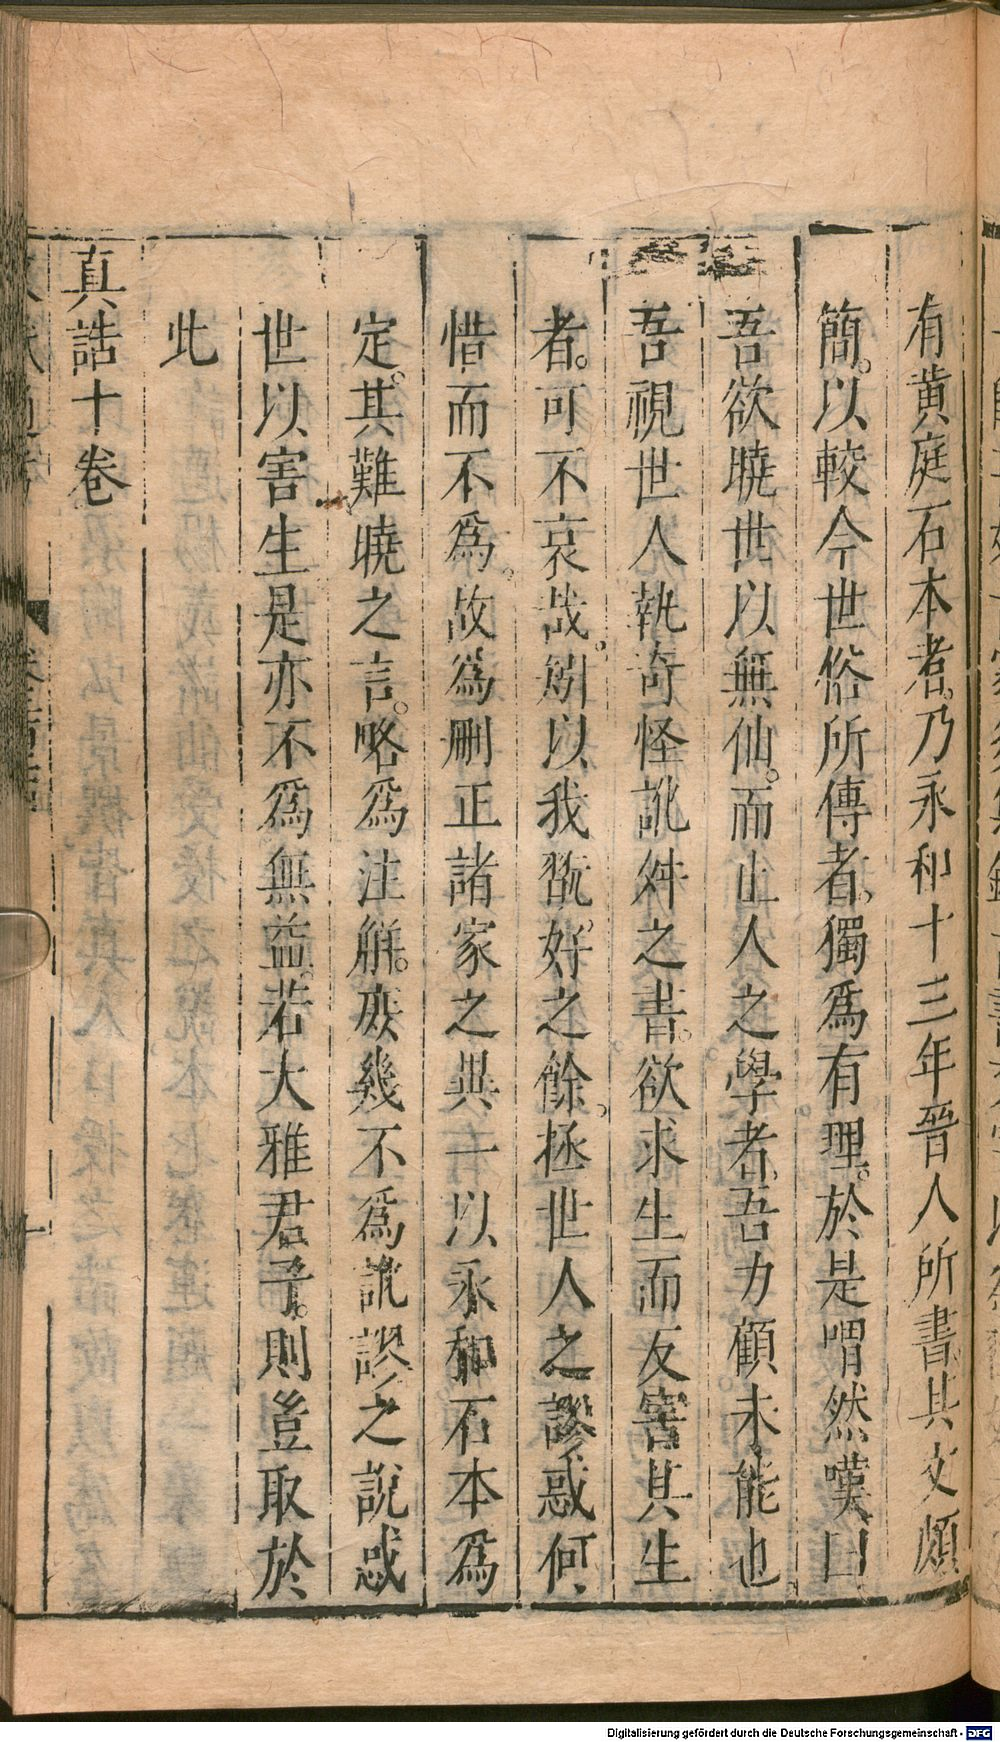 有黄庭石本者。乃永和十三年晉人所書。其文頗
簡。以較今世俗所傳者。獨爲有理。於是喟然嘆曰
吾欲曉世以無仙。而止人之學者。吾力顧未能也
吾視世人執奇怪訛舛之書。欲求生而反害其生
者。可不哀哉。矧以我翫好之餘。拯世人之謬惑何
惜而不爲。故爲刪正諸家之異一以永和石本爲
定。其難曉之言。略爲注解。庶幾不爲訛謬之說惑
世以害生是亦不爲無益。若大雅君子。則豈取於
此
真誥十卷
Digitalisierung gefördert durch die Deutsche Forschungsgemeinschaft - DFG